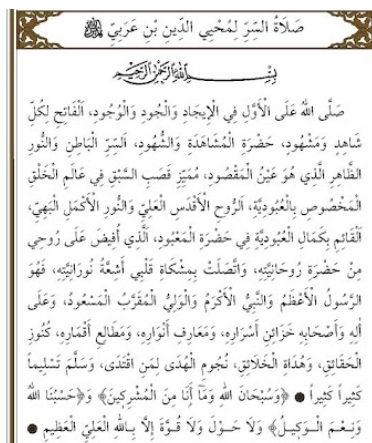 صَلَاةُ السِّرِّ لِمُحْيِي الدِّينِ بْنِ عَرَبِيّ
بِسْمِ اللهِ الرَّحْمٰنِ الرَّحِيمِ
صَلَّى اللهُ عَلَى الْأَوَّلِ فِي الْإِيجَادِ وَالْجُودِ وَالْوُجُودِ، اَلْفَاتِحِ لِكُلِّ
شَاهِدٍ وَمَشْهُودٍ، حَضْرَةِ الْمُشَاهَدَةِ وَالشُّهُودِ، اَلسِّرِّ الْبَاطِنِ وَالنُّورِ
الظَّاهِرِ الَّذِي هُوَ عَيْنُ الْمَقْصُودِ، مُمَيِّزِ قَصَبِ السَّبْقِ فِي عَالَمِ الْخَلْقِ
الْمَخْصُوصِ بِالْعُبُودِيَّةِ، اَلرُّوحِ الْأَقْدَسِ الْعَلِيِّ وَالنُّورِ الْأَكْمَلِ الْبَهِيِّ،
اَلْقَائِمِ بِكَمَالِ الْعُبُودِيَّةِ فِي حَضْرَةِ الْمَعْبُودِ، اَلَّذِي أُفِيضَ عَلَى رُوحِي
مِنْ حَضْرَةِ رُوحَانِيَّتِهِ، وَاتَّصَلَتْ بِمِشْكَاةِ قَلْبِي أَشِعَّةُ نُورَانِيَّتِهِ، فَهُوَ
الرَّسُولُ الْأَعْظَمُ وَالنَّبِيُّ الْأَكْرَمُ وَالْوَلِيُّ الْمُقَرَّبُ الْمَسْعُودُ، وَعَلَى
اٰلِهِ وَأَصْحَابِهِ خَزَائِنِ أَسْرَارِهِ، وَمَعَارِفِ أَنْوَارِهِ، وَمَطَالِعِ أَقْمَارِهِ، كُنُوزِ
الْحَقَائِقِ، وَهُدَاةِ الْخَلَائِقِ، نُجُومِ الْهُدَى لِمَنِ اقْتَدَى، وَسَلَّمَ تَسْلِيماً
كَثِيراً كَثِيراً ● ﴿وَسُبْحَانَ اللهِ وَمَآ أَنَا مِنَ الْمُشْرِكِينَ﴾ وَ﴿حَسْبُنَا اللهُ
وَنِعْمَ الْوَكِيلُ﴾ وَلَا حَوْلَ وَلَا قُوَّةَ إِلَّا بِاللهِ الْعَلِيِّ الْعَظِيمِ ●